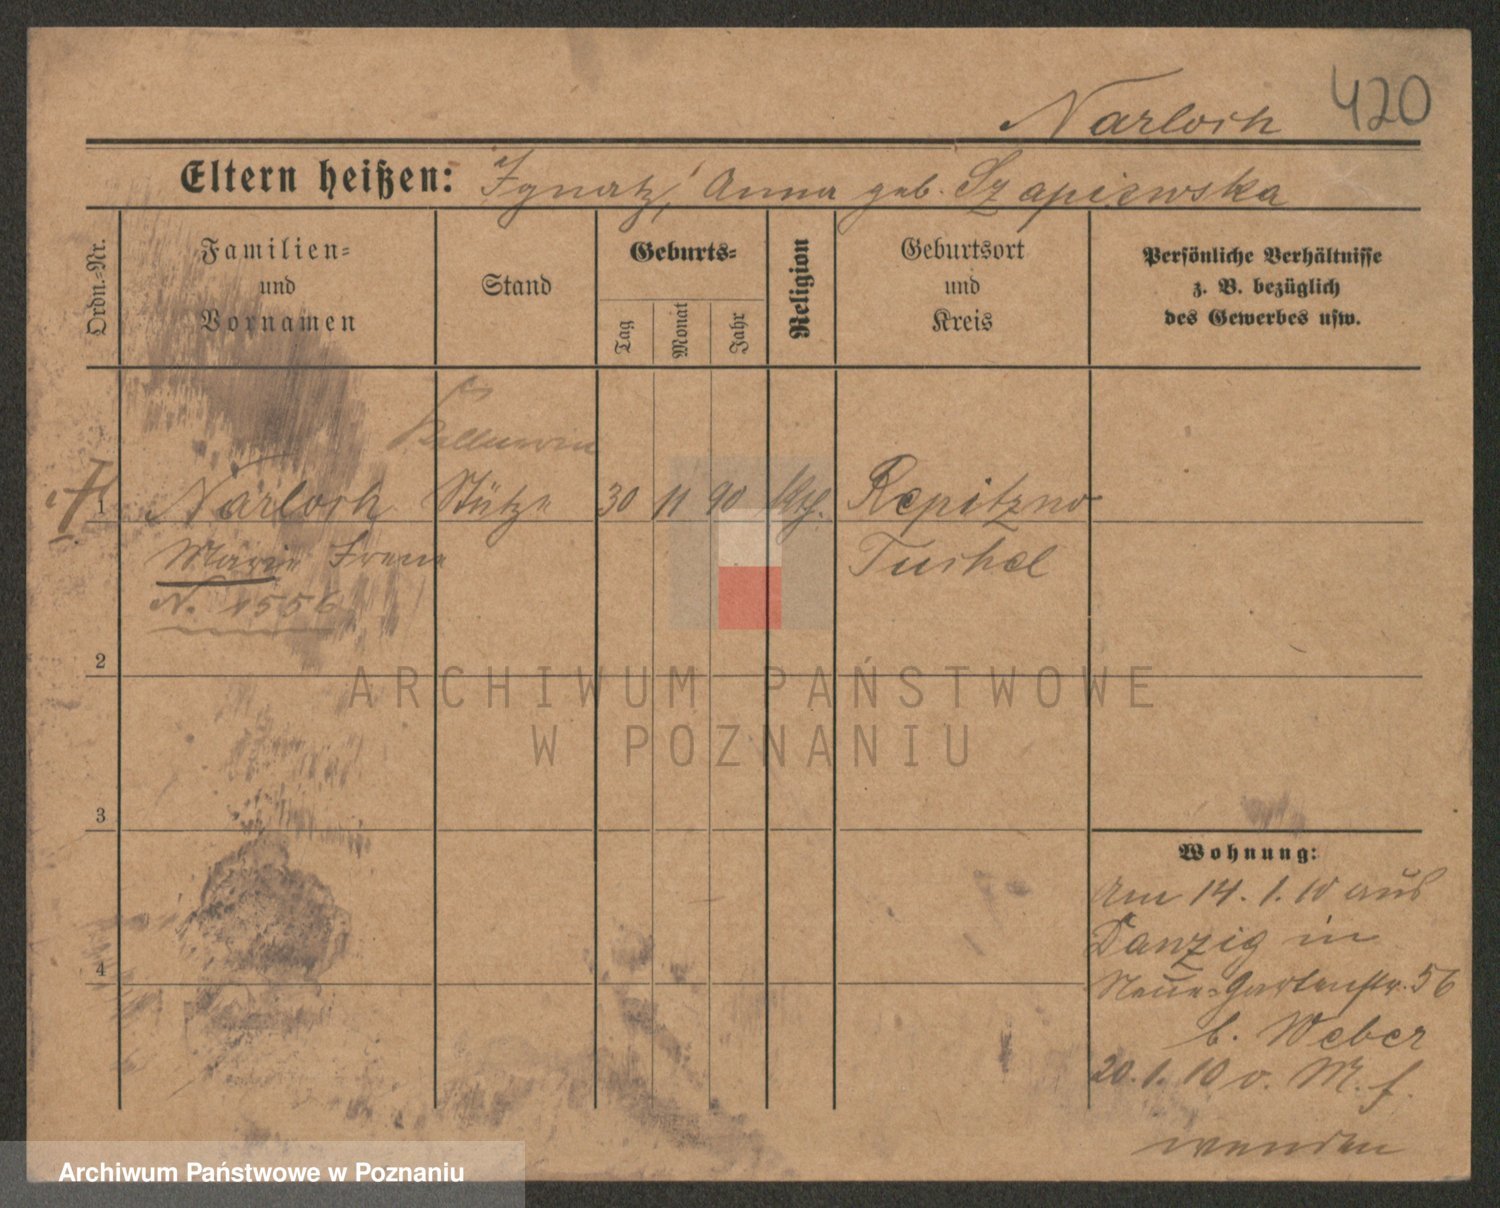 Narloch 420
Eltern heißen: Ignatz, Anna geb. Szapiewska
Ordn.-Nr.
Familien-
und
Vornamen
Stand
Geburts-
Tag
Monat
Jahr
Religion
Geburtsort
und
Kreis
Persönliche Verhältnisse
z. B. bezüglich
des Gewerbes usw.
Kellnerin
1 Narloch Stütze 30 11 90 kth. Repitzno
Marie Irene Tuchel
N. 1556
2
3
4
Wohnung:
Am 14.1.10 aus
Danzig in
Neue-Gartenstr. 56
b. Weber
20.1.10 v. M. f.
wenden
ARCHIWUM PAŃSTWOWE
W POZNANIU
Archiwum Państwowe w Poznaniu